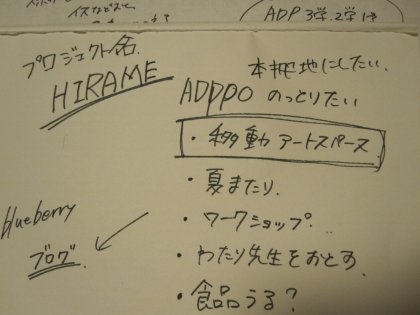 イスなどあと
ADP 3学.2学は
プロジェクト名.
HIRAME
本拠地にしたい.
ADPPO のっとりたい
・移動 アートスペース
・夏まつり.
・ワークショップ.
blueberry
ブログ.
・わたり先生をおとす
・食品うる?